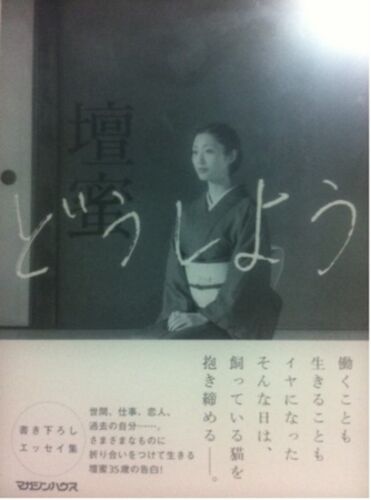 壇蜜
どうしよう
働くことも
生きることも
イヤになった
そんな日は、
飼っている猫を
抱き締める——。
書き下ろし
エッセイ集
世間、仕事、恋人、
過去の自分……。
さまざまなものに
折り合いをつけて生きる
壇蜜35歳の告白!
マガジンハウス